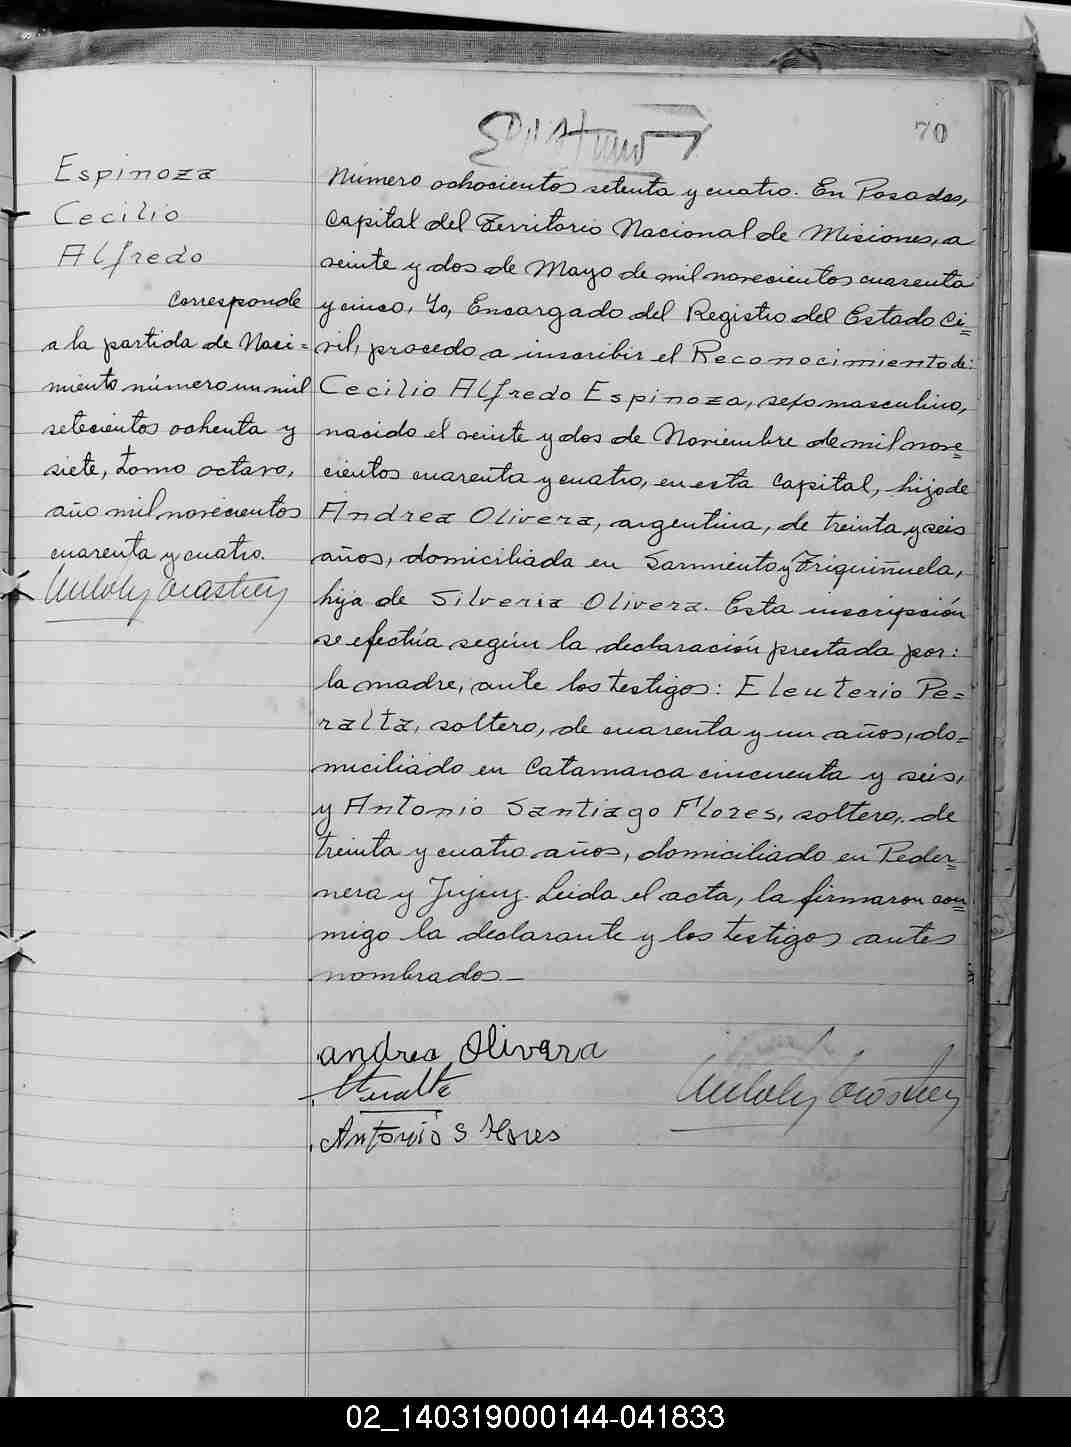 70
Espinoza
Cecilio
Alfredo
Corresponde
a la partida de Naci=
miento número un mil
setecientos ochenta y
siete, tomo octavo,
año mil novecientos
cuarenta y cuatro.
Número ochocientos setenta y cuatro. En Posadas,
Capital del Territorio Nacional de Misiones, a
veinte y dos de Mayo de mil novecientos cuarenta
y cinco, Yo, Encargado del Registro del Estado Ci=
vil, procedo a inscribir el Reconocimiento de:
Cecilio Alfredo Espinoza, sexo masculino,
nacido el veinte y dos de Noviembre de mil nove=
cientos cuarenta y cuatro, en esta Capital, hijo de
Andrea Olivera, argentina, de treinta y seis
años, domiciliada en Sarmiento y Triquiñuela,
hija de Silveria Olivera. Esta inscripción
se efectúa según la declaración prestada por:
la madre, ante los testigos: Eleuterio Pe=
ralta, soltero, de cuarenta y un años, do=
miciliado en Catamarca cincuenta y seis,
y Antonio Santiago Flores, soltero, de
treinta y cuatro años, domiciliado en Peder=
nera y Jujuy. Leida el acta, la firmaron con=
migo la declarante y los testigos antes
nombrados.—
andrea Olivera
Antonio S Flores
02_140319000144-041833